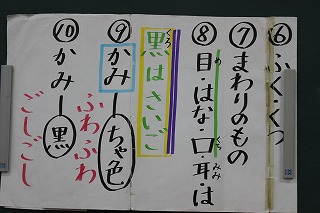 ⑥ふく・くつ
⑦まわりのもの
⑧目・はな・口・耳・は
め くち みみ
黒はさいご
くろ
⑨かみーちゃ色
ふわふわ
⑩かみー黒
ごしごし